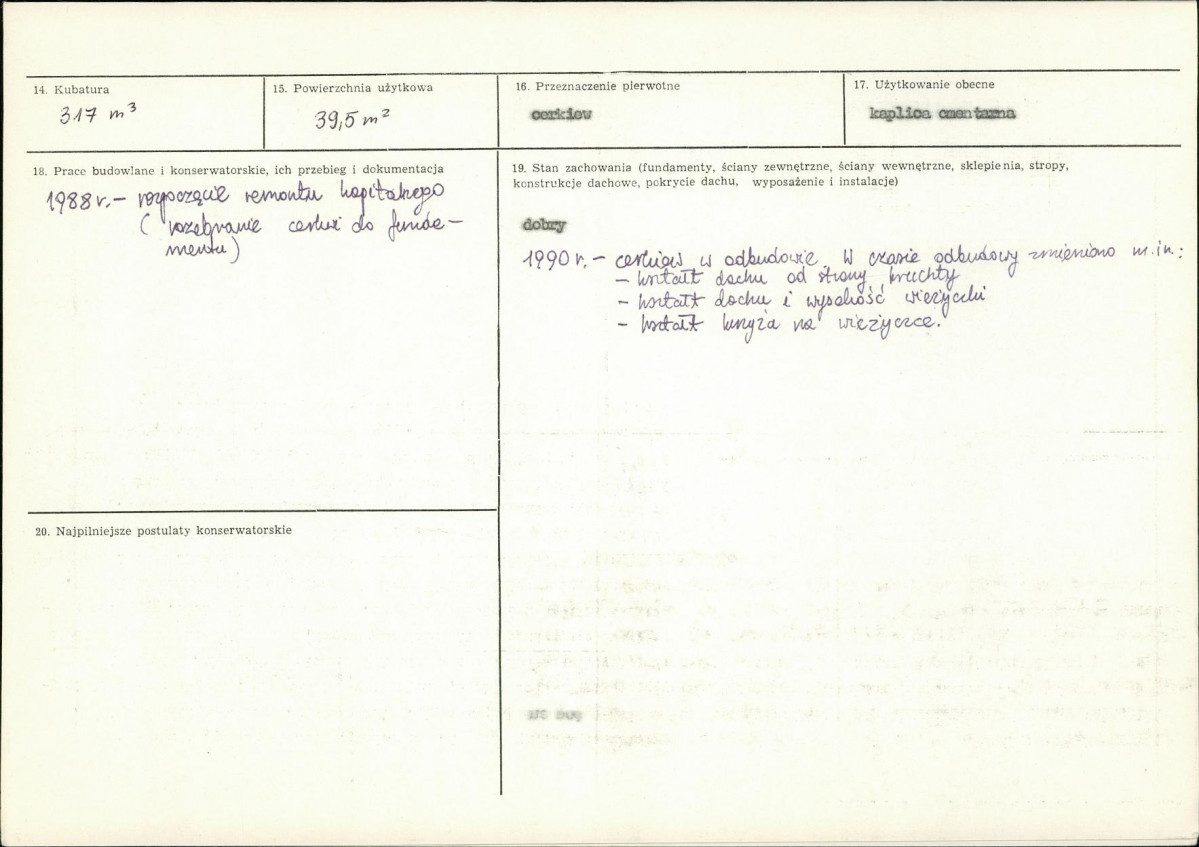 14. Kubatura
317 m³
15. Powierzchnia użytkowa
39,5 m²
16. Przeznaczenie pierwotne
cerkiew
17. Użytkowanie obecne
kaplica cmentarna
18. Prace budowlane i konserwatorskie, ich przebieg i dokumentacja
1988 r. – rozpoczęcie remontu kapitalnego
( rozebranie cerkwi do funda-
mentu)
19. Stan zachowania (fundamenty, ściany zewnętrzne, ściany wewnętrzne, sklepienia, stropy,
konstrukcje dachowe, pokrycie dachu, wyposażenie i instalacje)
dobry
1990 r. – cerkiew w odbudowie. W czasie odbudowy zmieniono m.in.:
– kształt dachu od strony kruchty
– kształt dachu i wysokość wieżyczki
– kształt krzyża na wieżyczce.
20. Najpilniejsze postulaty konserwatorskie